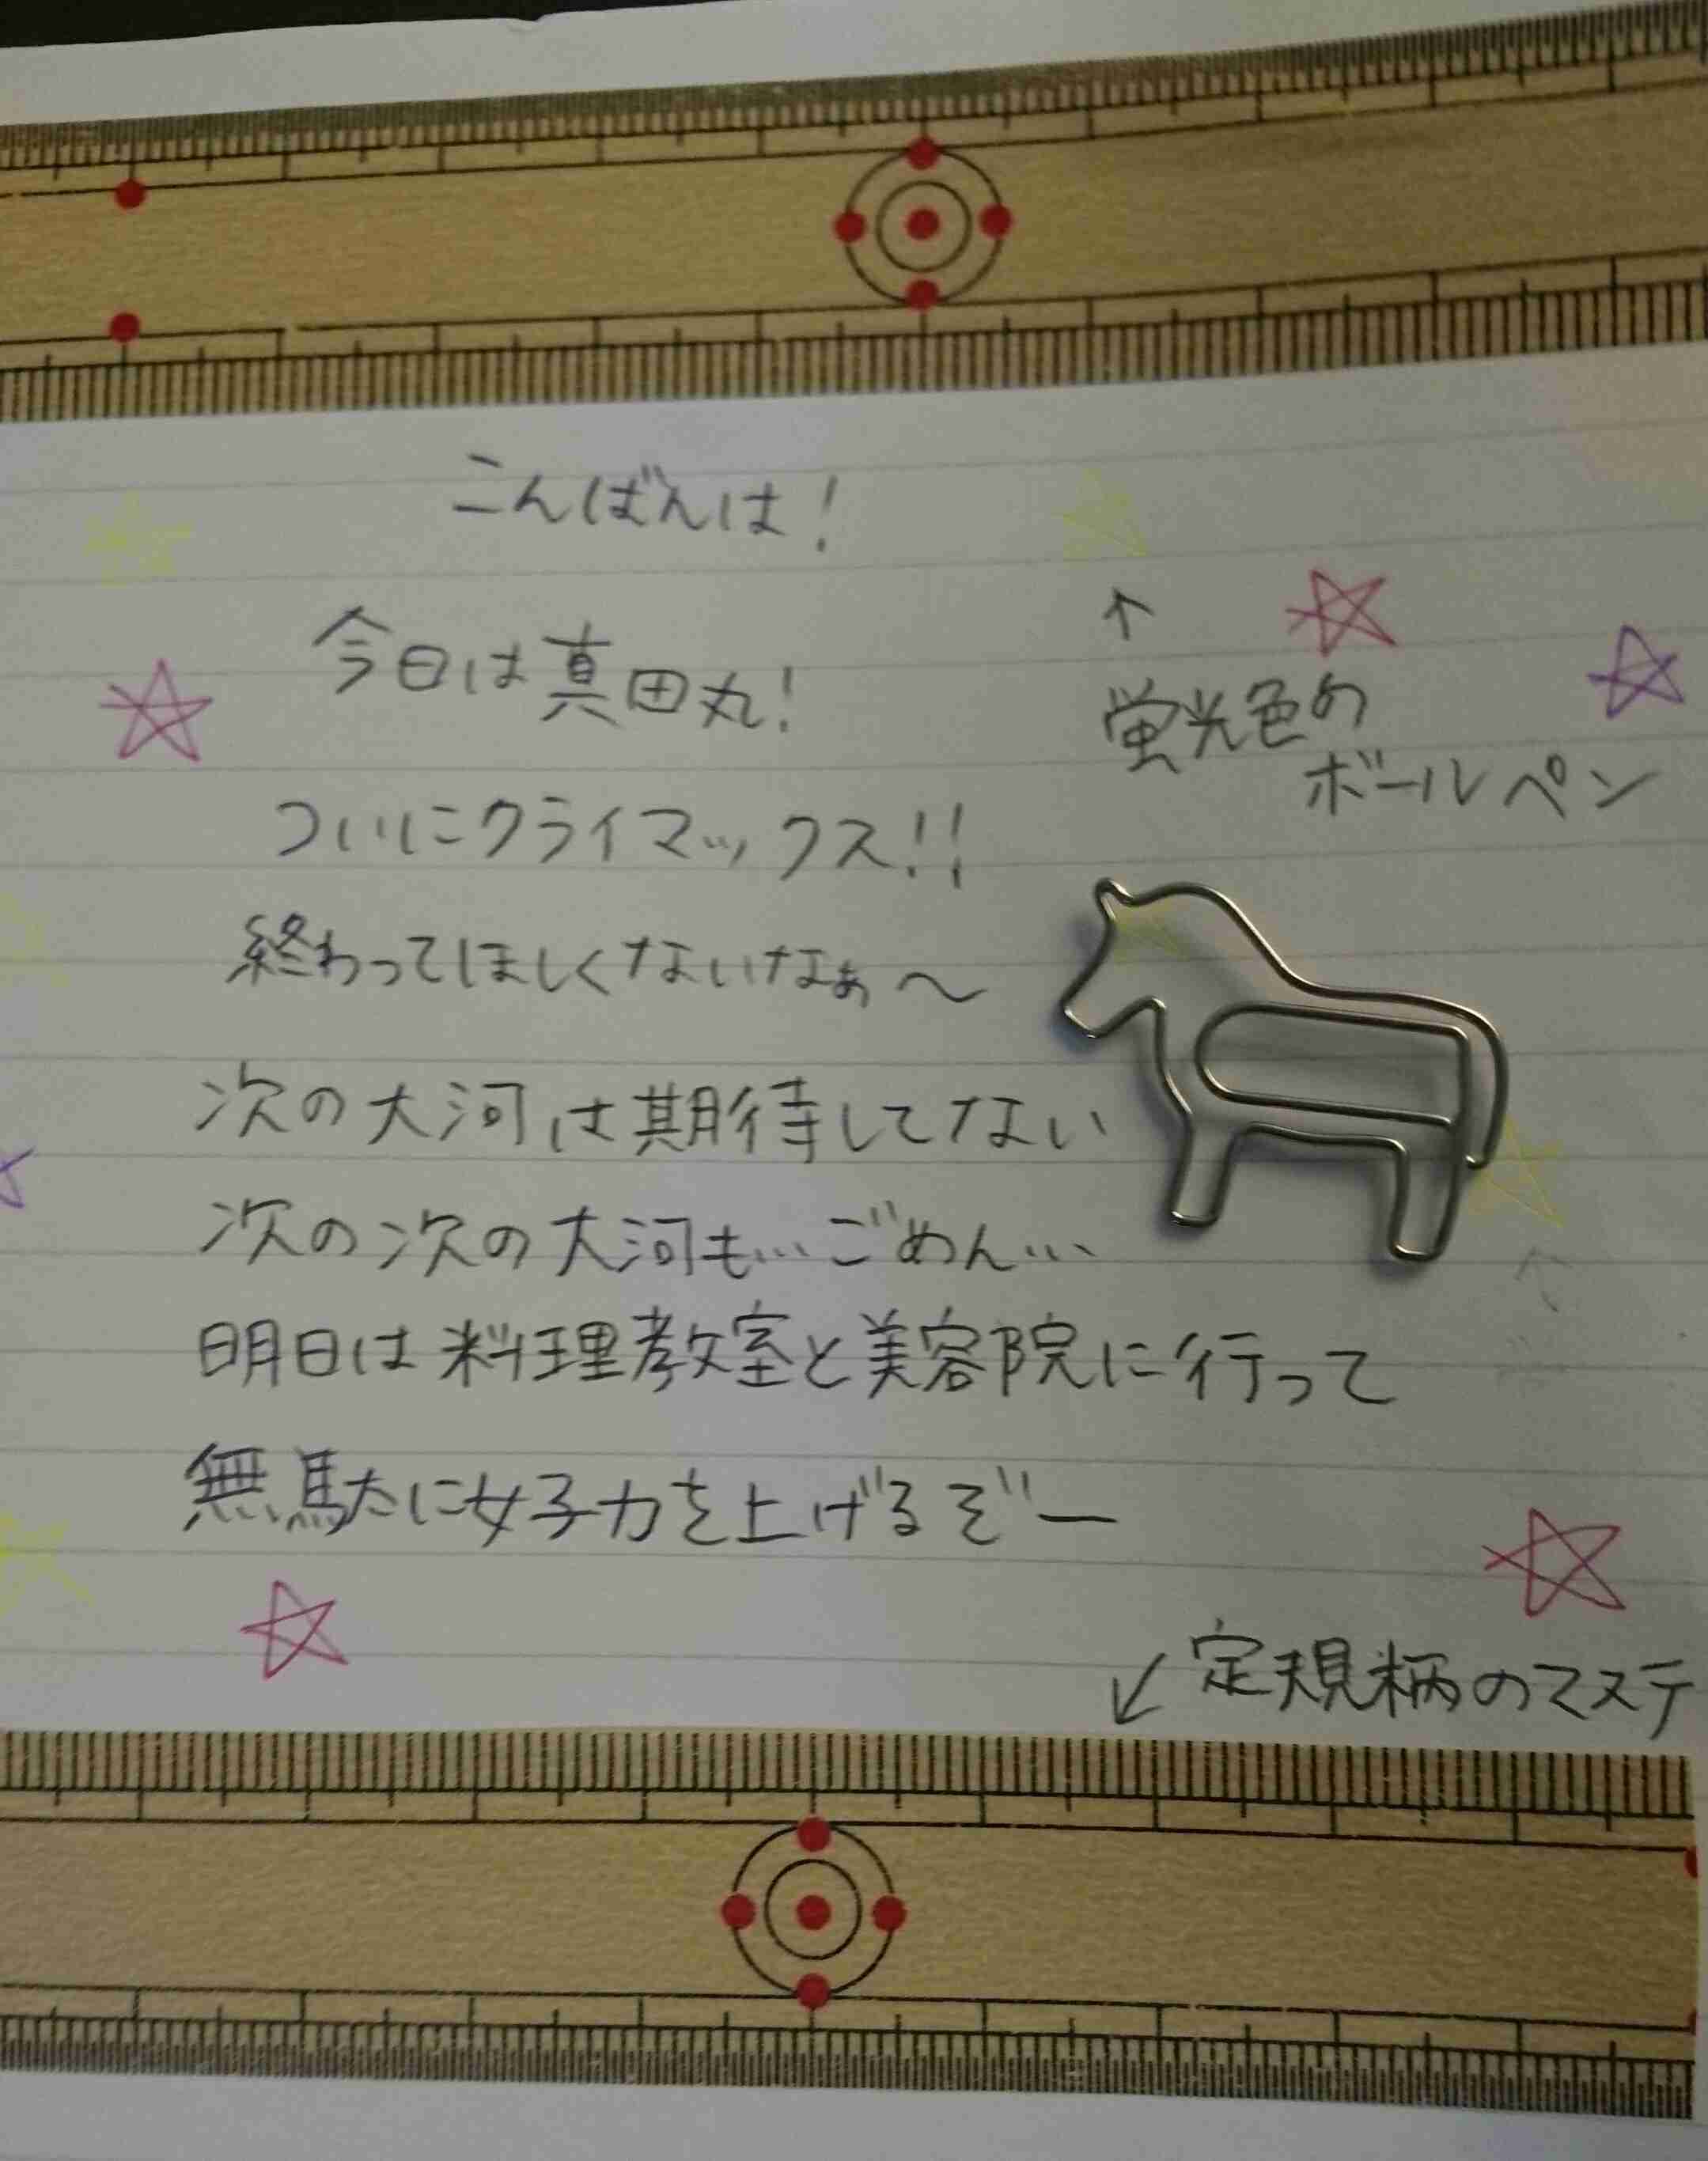 こんばんは!
今日は真田丸!
↑
蛍光色の
ボールペン
ついにクライマックス!!
終わってほしくないなぁ〜
次の大河は期待してない
次の次の大河も…ごめん…
明日は料理教室と美容院に行って
無駄に女子力を上げるぞー
↙定規柄のマステ